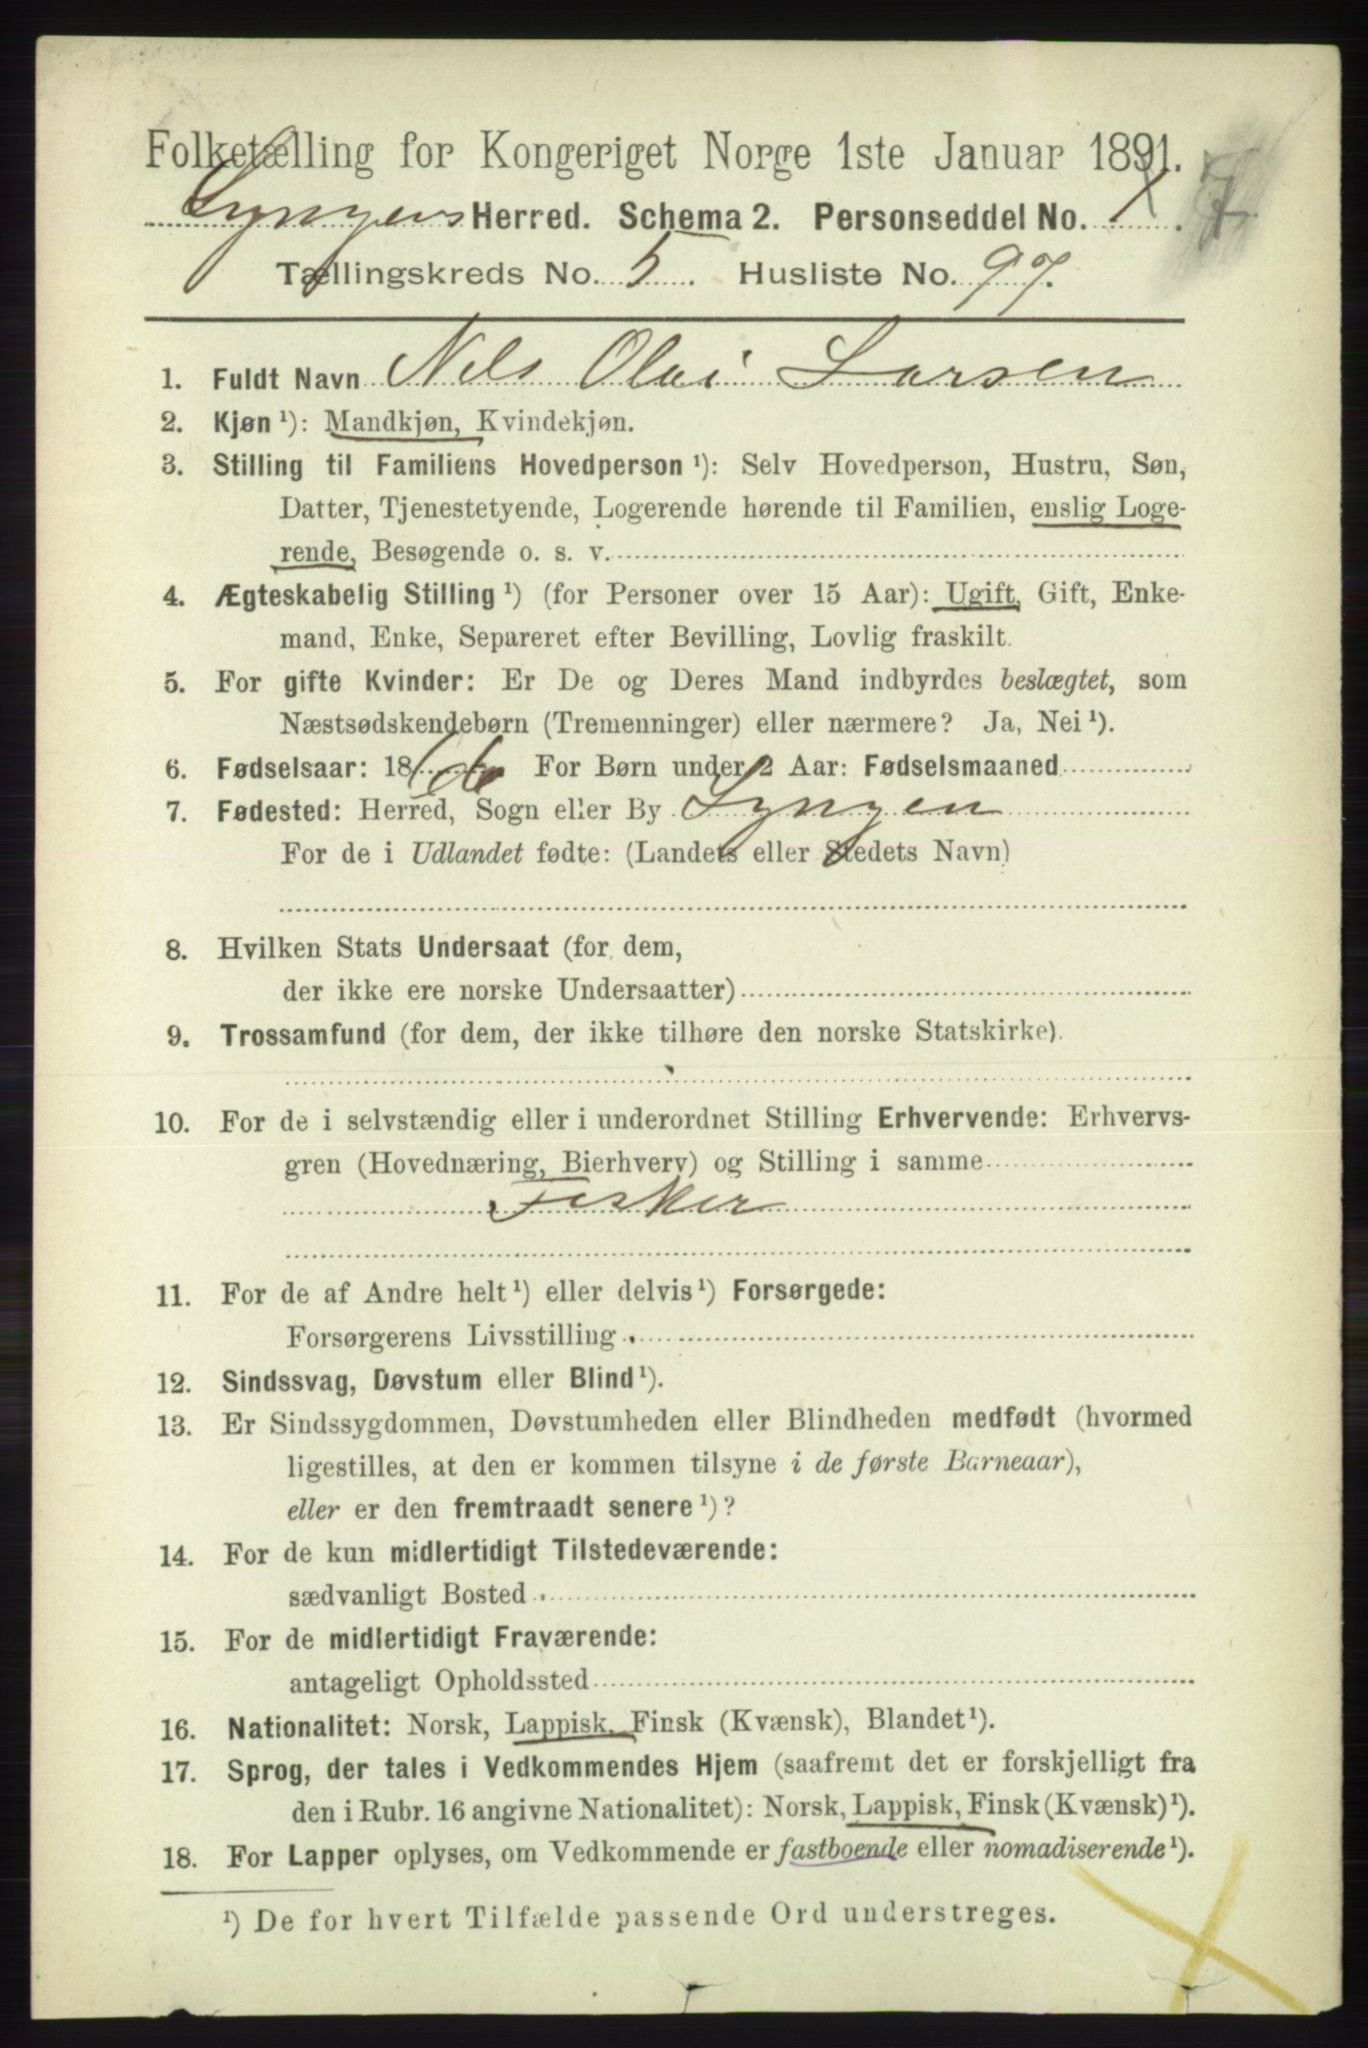 Folketælling for Kongeriget Norge 1ste Januar 1891.
Lyngens Herred. Schema 2. Personseddel No. 1. 7
Tællingskreds No. 5. Husliste No. 97.
1. Fuldt Navn Nels Olai Larsen
2. Kjøn ¹): Mandkjøn, Kvindekjøn.
3. Stilling til Familiens Hovedperson ¹): Selv Hovedperson, Hustru, Søn,
Datter, Tjenestetyende, Logerende hørende til Familien, enslig Loge-
rende, Besøgende o. s. v.
4. Ægteskabelig Stilling ¹) (for Personer over 15 Aar): Ugift, Gift, Enke-
mand, Enke, Separeret efter Bevilling, Lovlig fraskilt.
5. For gifte Kvinder: Er De og Deres Mand indbyrdes beslægtet, som
Næstsødskendebørn (Tremenninger) eller nærmere? Ja, Nei ¹).
6. Fødselsaar: 1866 For Børn under 2 Aar: Fødselsmaaned
7. Fødested: Herred, Sogn eller By Lyngen
For de i Udlandet fødte: (Landets eller Stedets Navn)
8. Hvilken Stats Undersaat (for dem,
der ikke ere norske Undersaatter)
9. Trossamfund (for dem, der ikke tilhøre den norske Statskirke).
10. For de i selvstændig eller i underordnet Stilling Erhvervende: Erhvervs-
gren (Hovednæring, Bierhverv) og Stilling i samme
Fisker
11. For de af Andre helt ¹) eller delvis ¹) Forsørgede:
Forsørgerens Livsstilling
12. Sindssvag, Døvstum eller Blind ¹).
13. Er Sindssygdommen, Døvstumheden eller Blindheden medfødt (hvormed
ligestilles, at den er kommen tilsyne i de første Barneaar),
eller er den fremtraadt senere ¹)?
14. For de kun midlertidigt Tilstedeværende:
sædvanligt Bosted
15. For de midlertidigt Fraværende:
antageligt Opholdssted
16. Nationalitet: Norsk, Lappisk, Finsk (Kvænsk), Blandet ¹).
17. Sprog, der tales i Vedkommendes Hjem (saafremt det er forskjelligt fra
den i Rubr. 16 angivne Nationalitet): Norsk, Lappisk, Finsk (Kvænsk) ¹).
18. For Lapper oplyses, om Vedkommende er fastboende eller nomadiserende ¹).
¹) De for hvert Tilfælde passende Ord understreges.